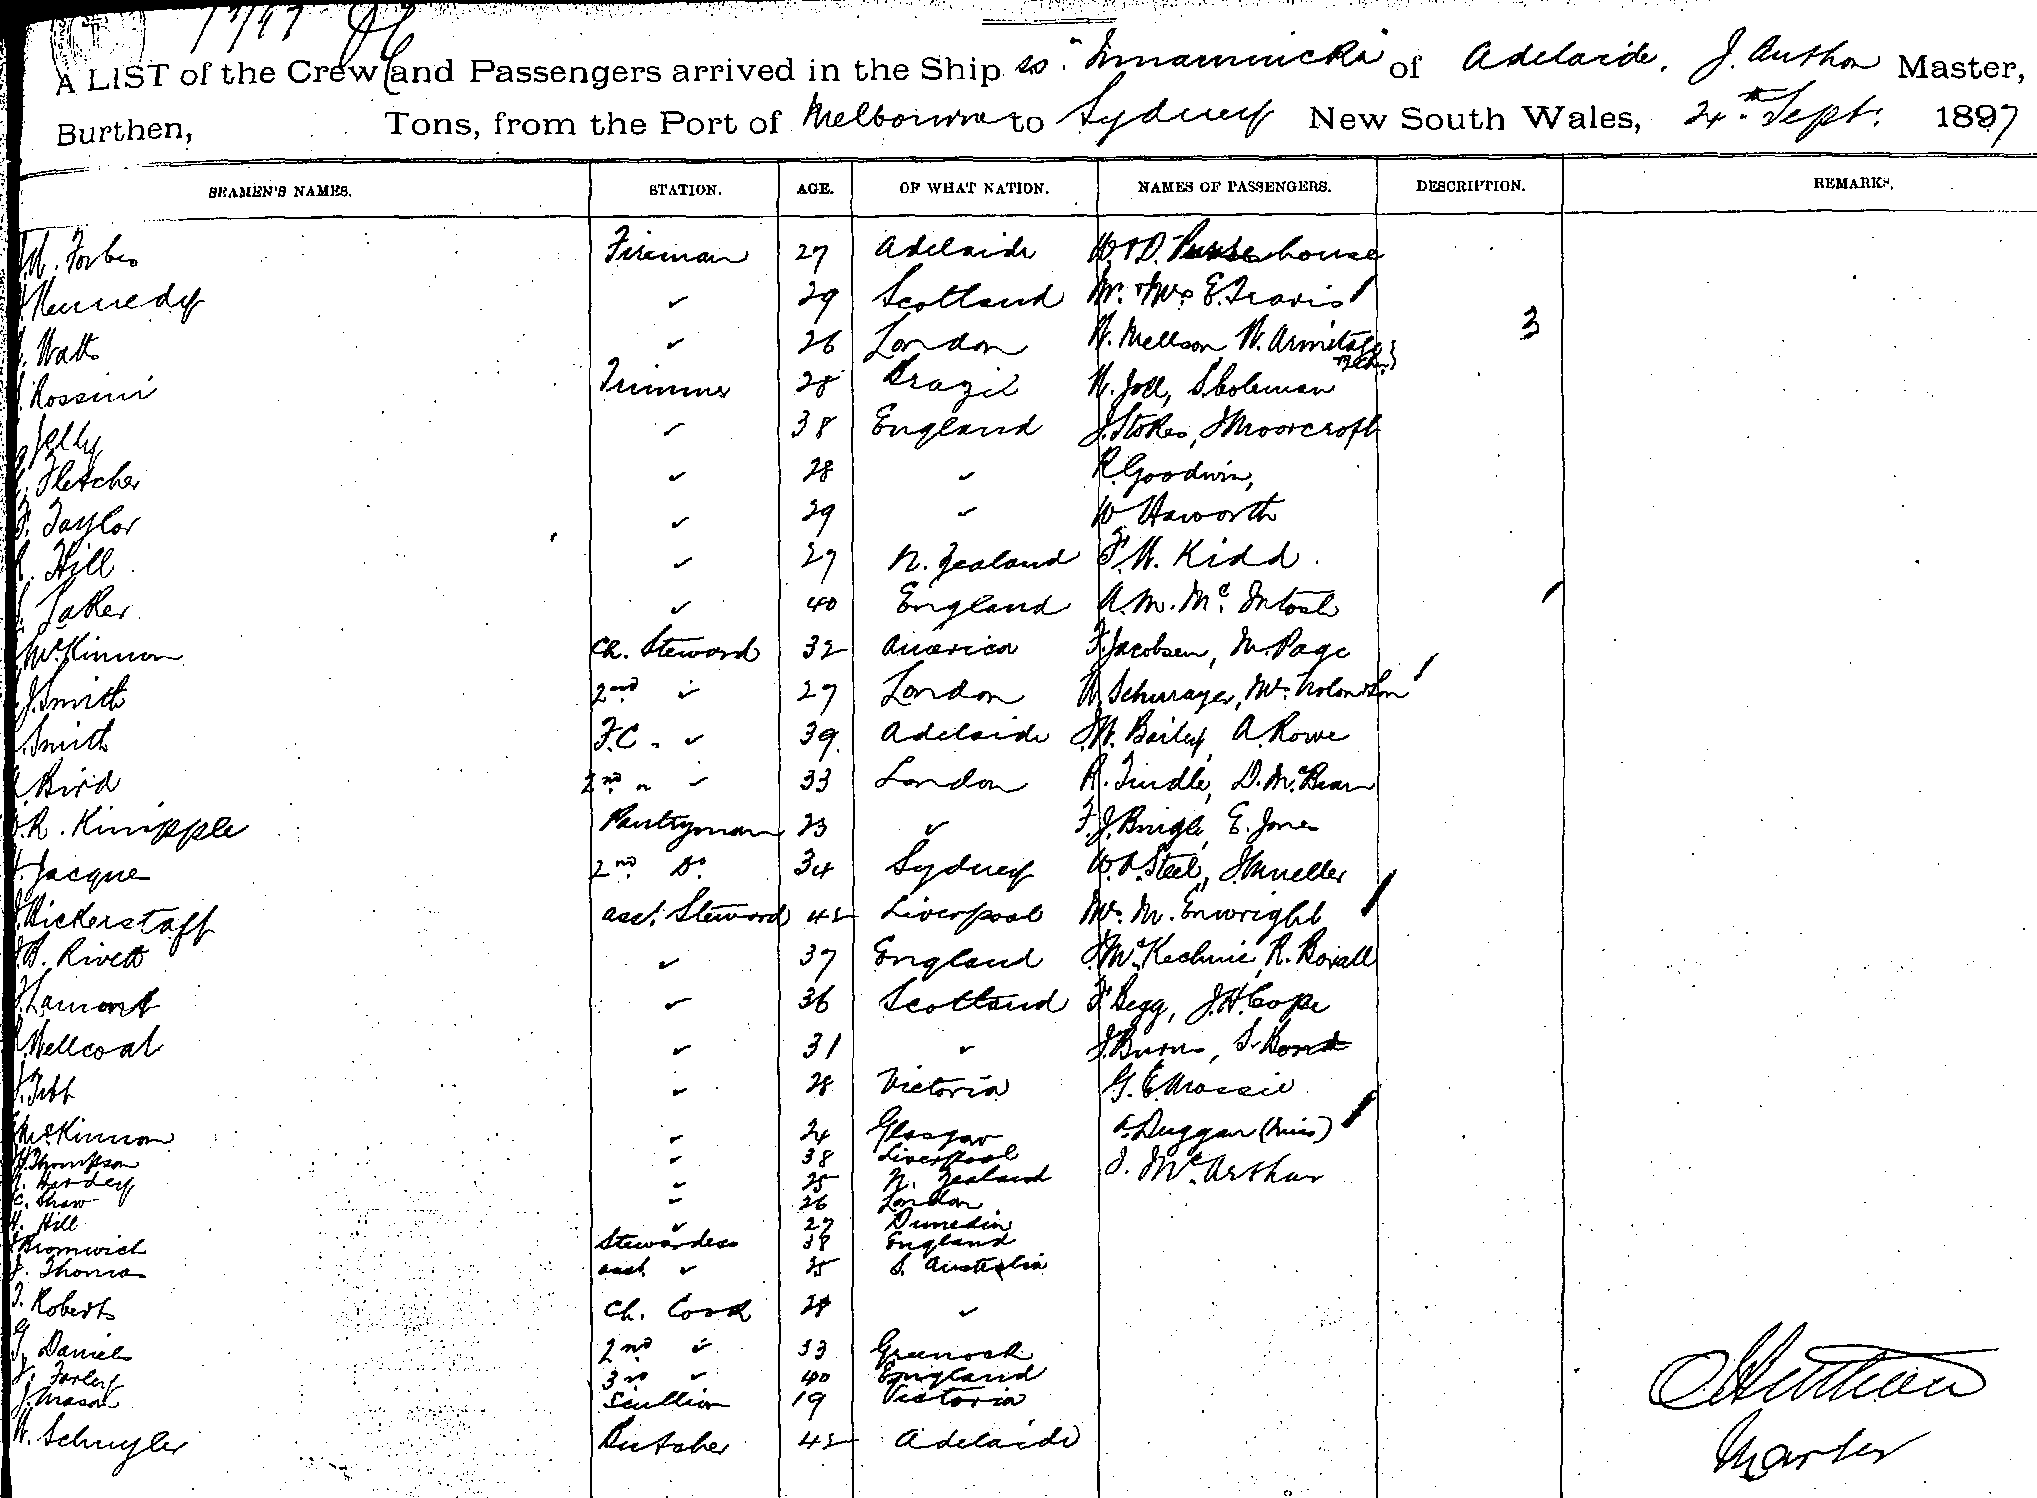 A LIST of the Crew and Passengers arrived in the Ship ss "Innamincka" of Adelaide. J. Author Master,
Burthen, Tons, from the Port of Melbourne to Sydney New South Wales, 24th Sept. 1897
SEAMEN'S NAMES. STATION. AGE. OF WHAT NATION. NAMES OF PASSENGERS. DESCRIPTION. REMARKS.
Forbes Fireman 27 Adelaide W & D. house
Kennedy ✓ 29 Scotland Mr. & Mrs E. Travis
Watts ✓ 26 London W. Mellson W. Armitage 3
Rossini Trimmer 28 Brazil W. Joll, S. Coleman
Jelly ✓ 38 England J. Stokes, J Moorcroft
Fletcher ✓ 28 ✓ R. Goodwin,
F. Taylor ✓ 29 ✓ W Haworth
Hill ✓ 27 N. Zealand F. W. Kidd
Laker ✓ 40 England A. M. Mc Intosh
McKinnon Ch. Steward 32 America F. Jacobsen, M. Page
J. Smith 2nd ✓ 27 London Mrs
Smith F.C. ✓ 39 Adelaide J.W. Bailey, A. Rowe
Bird 2nd " ✓ 33 London R. Tindle, D. McBean
R. Knipple Pantryman 23 ✓ F. J. E. Jones
Jacque 2nd Do. 34 Sydney W. A. Steel, J. Mueller
Bickerstaff asst. Steward 42 Liverpool Mrs. M. Enwright
Rivett ✓ 37 England J McKechnie, R. Boxall
Lamont ✓ 36 Scotland F. Begg, J. H. Cope
Wellcoat ✓ 31 ✓ J. Burns, S. Bond
Tebb ✓ 28 Victoria G. E. Massie
McKinnon ✓ 24 Glasgow A. Duggan (Miss)
Thompson ✓ 38 Liverpool J. McArthur
Hardey ✓ 25 N. Zealand
C. Shaw ✓ 26 London
H. Hill ✓ 27 Dunedin
Bromwich Stewardess 38 England
Thomas asst ✓ 25 S. Australia
J. Roberts Ch. Cook 28 ✓
G. Daniels 2nd ✓ 33 Greenock
J. Farley 3rd ✓ 40 England
J. Mason Scullion 19 Victoria
W. Schuyler Butcher 42 Adelaide
Master